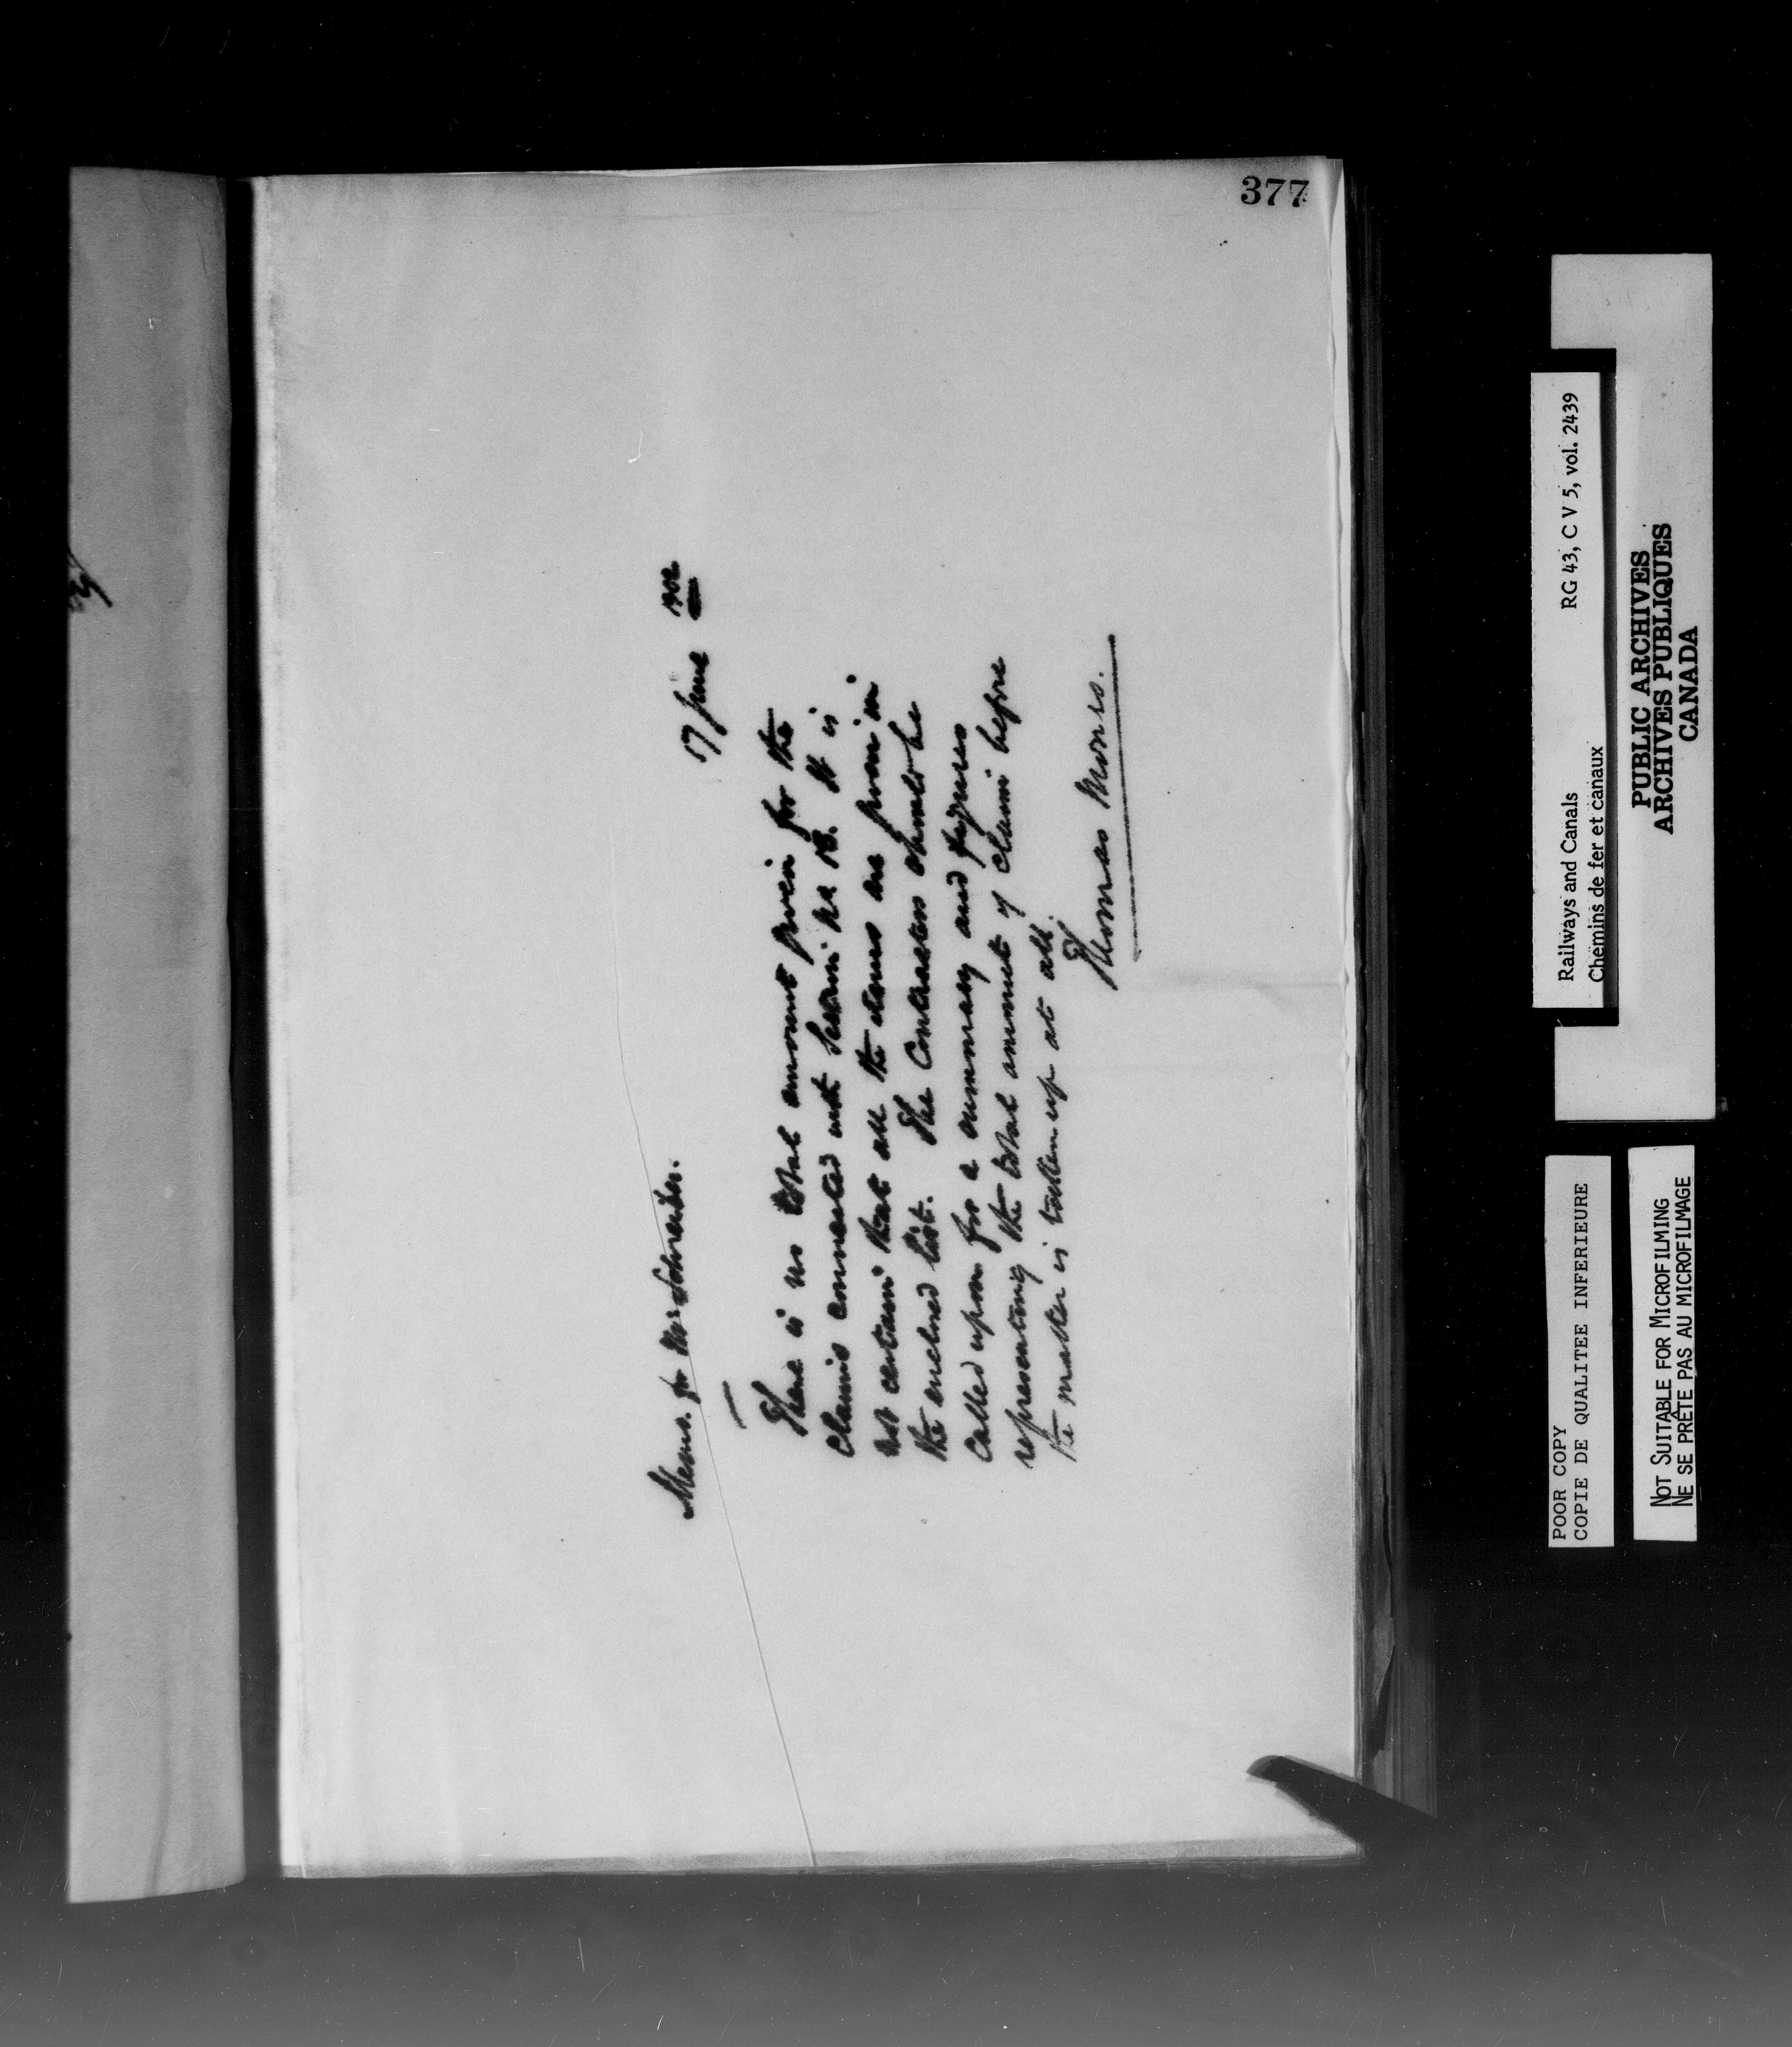 377
Memo. for Mr Schreiber.
17 June 1902
There is no total amount given for the
claims connected with Section No 13. It is
not certain that all the items are given in
the enclosed list. The Contractors should be
called upon for a summary and figures
representing the total amount of claim before
the matter is taken up at all.
Thomas Monro.
Railways and Canals RG 43, C V 5, vol. 2439
Chemins de fer et canaux
PUBLIC ARCHIVES
ARCHIVES PUBLIQUES
CANADA
POOR COPY
COPIE DE QUALITEE INFERIEURE
NOT SUITABLE FOR MICROFILMING
NE SE PRÊTE PAS AU MICROFILMAGE